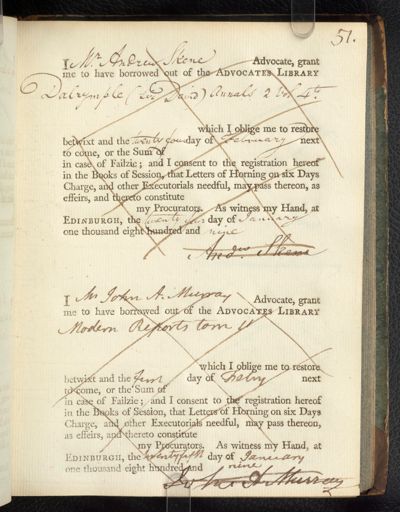 51.
I Mr Andrew Skene Advocate, grant
me to have borrowed out of the ADVOCATES LIBRARY
Dalrymple (Sir David) Annals 2 vol 4to.
which I oblige me to restore
betwixt and the twenty four day of February next
to come, or the Sum of
in case of Failzie; and I consent to the registration hereof
in the Books of Session, that Letters of Horning on six Days
Charge, and other Executorials needful, may pass thereon, as
effeirs, and thereto constitute
my Procurators. As witness my Hand, at
EDINBURGH, the twenty four day of January
one thousand eight hundred and nine
Andw Skene
I Mr John A. Murray Advocate, grant
me to have borrowed out of the ADVOCATES LIBRARY
Modern Reports tom
which I oblige me to restore
betwixt and the first day of Febry next
to come, or the Sum of
in case of Failzie; and I consent to the registration hereof
in the Books of Session, that Letters of Horning on six Days
Charge, and other Executorials needful, may pass thereon,
as effeirs, and thereto constitute
my Procurators. As witness my Hand, at
EDINBURGH, the twenty fifth day of January
one thousand eight hundred and nine
John A Murray